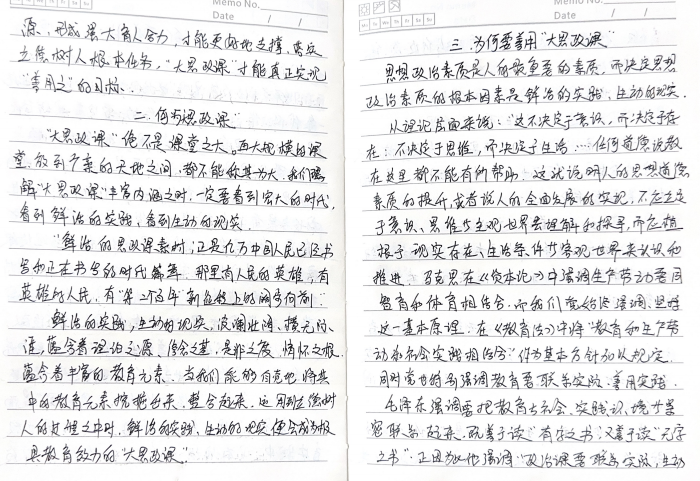 Memo No.
Date / /
源，形成强大育人合力，才能更好地支撑、落实
立德树人根本任务，"大思政课"才能真正实现
"善用之"的目标。
二、何为"大思政课"
"大思政课"绝不是课堂之大。再大规模的课
堂，放到广袤的天地之间，都不能称其为大。我们理
解"大思政课"丰富内涵之时，一定要看到宏大的时代，
看到鲜活的实践、看到生动的现实。
"鲜活的思政课素材，正是九万中国人民已经书
写和正在书写的时代篇章。那里有人民的英雄，有
英雄的人民，有"第二个百年"新征程上的阔步向前"
鲜活的实践，生动的现实，波澜壮阔、撼天动
蕴含着理论之源、信念之基、是非之度、情怀之根、
蕴含着丰富的教育元素。当我们能够自觉地将其
中的教育元素挖掘出来、整合起来，运用到立德树
人的过程之中时，鲜活的实践、生动的现实便会成为极
具教育效力的"大思政课"。
Memo No.
Date / /
三、为何要善用"大思政课"
思想政治素质是人的最重要的素质，而决定思想
政治素质的根本因素是鲜活的实践、生动的现实。
从理论层面来说："这不决定于意识，而决定于存
在；不决定于思维，而决定于生活……任何道德说教
在这里都不能有所帮助。"这就说明人的思想道德
素质的提升，或者说人的全面发展的实现，不应立足
于意识、思维等主观世界去理解和探寻，而应植
根于现实存在、生活条件等客观世界来认识和
推进。马克思在《资本论》中强调生产劳动要同
智育和体育相结合，而我们党始终强调、坚持
这一基本原理，在《教育法》中将"教育和生产劳
动和社会实践相结合"作为基本方针加以规定。
同时党也特别强调教育要联系实际、善用实践。
毛泽东强调要把教育与社会、实践认、统一紧
密联系起来，既善于读"有字之书"，又善于读"无字
之书"。正因如此他强调"政治课要联系实际，生动